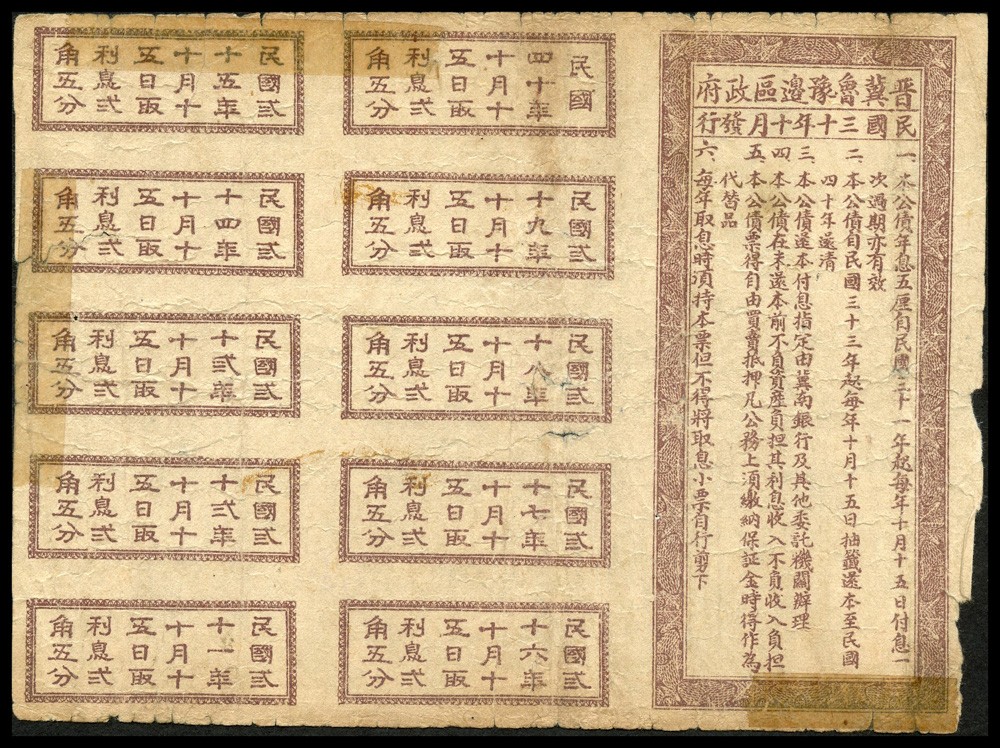 晋冀魯豫邊區政府
民國三十年十月發行
一、本公債年息五厘自民國三十一年起每年十月十五日付息一
次過期亦有效
二、本公債自民國三十三年起每年十月十五日抽籤還本至民國
四十年還清
三、本公債還本付息指定由冀南銀行及其他委託機關辦理
四、本公債在未還本前不負資產負担其利息收入不負收入負担
五、本公債票得自由買賣抵押凡公務上須繳納保証金時得作為
代替品
六、每年取息時須持本票但不得將取息小票自行剪下
民國
四十年
十月十
五日取
利息弍
角五分
民國弎
十九年
十月十
五日取
利息弍
角五分
民國弎
十八年
十月十
五日取
利息弍
角五分
民國弎
十七年
十月十
五日取
利息弍
角五分
民國弎
十六年
十月十
五日取
利息弍
角五分
民國弎
十五年
十月十
五日取
利息弍
角五分
民國弎
十四年
十月十
五日取
利息弍
角五分
民國弎
十弎年
十月十
五日取
利息弍
角五分
民國弎
十弍年
十月十
五日取
利息弍
角五分
民國弎
十一年
十月十
五日取
利息弍
角五分